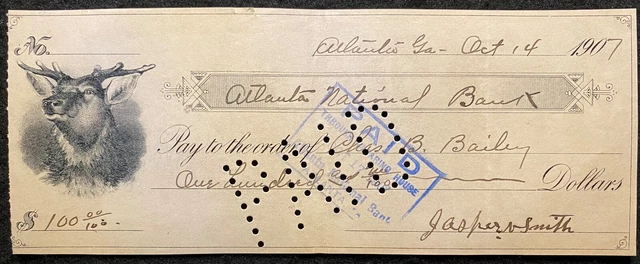 No. Atlanta Ga - Oct 14 1907
Atlanta National Bank
Pay to the order of Chas B. Bailey
One hundred Dollars
$ 100 00/100 -
Jasper N Smith
PAID
HOUSE
Bank